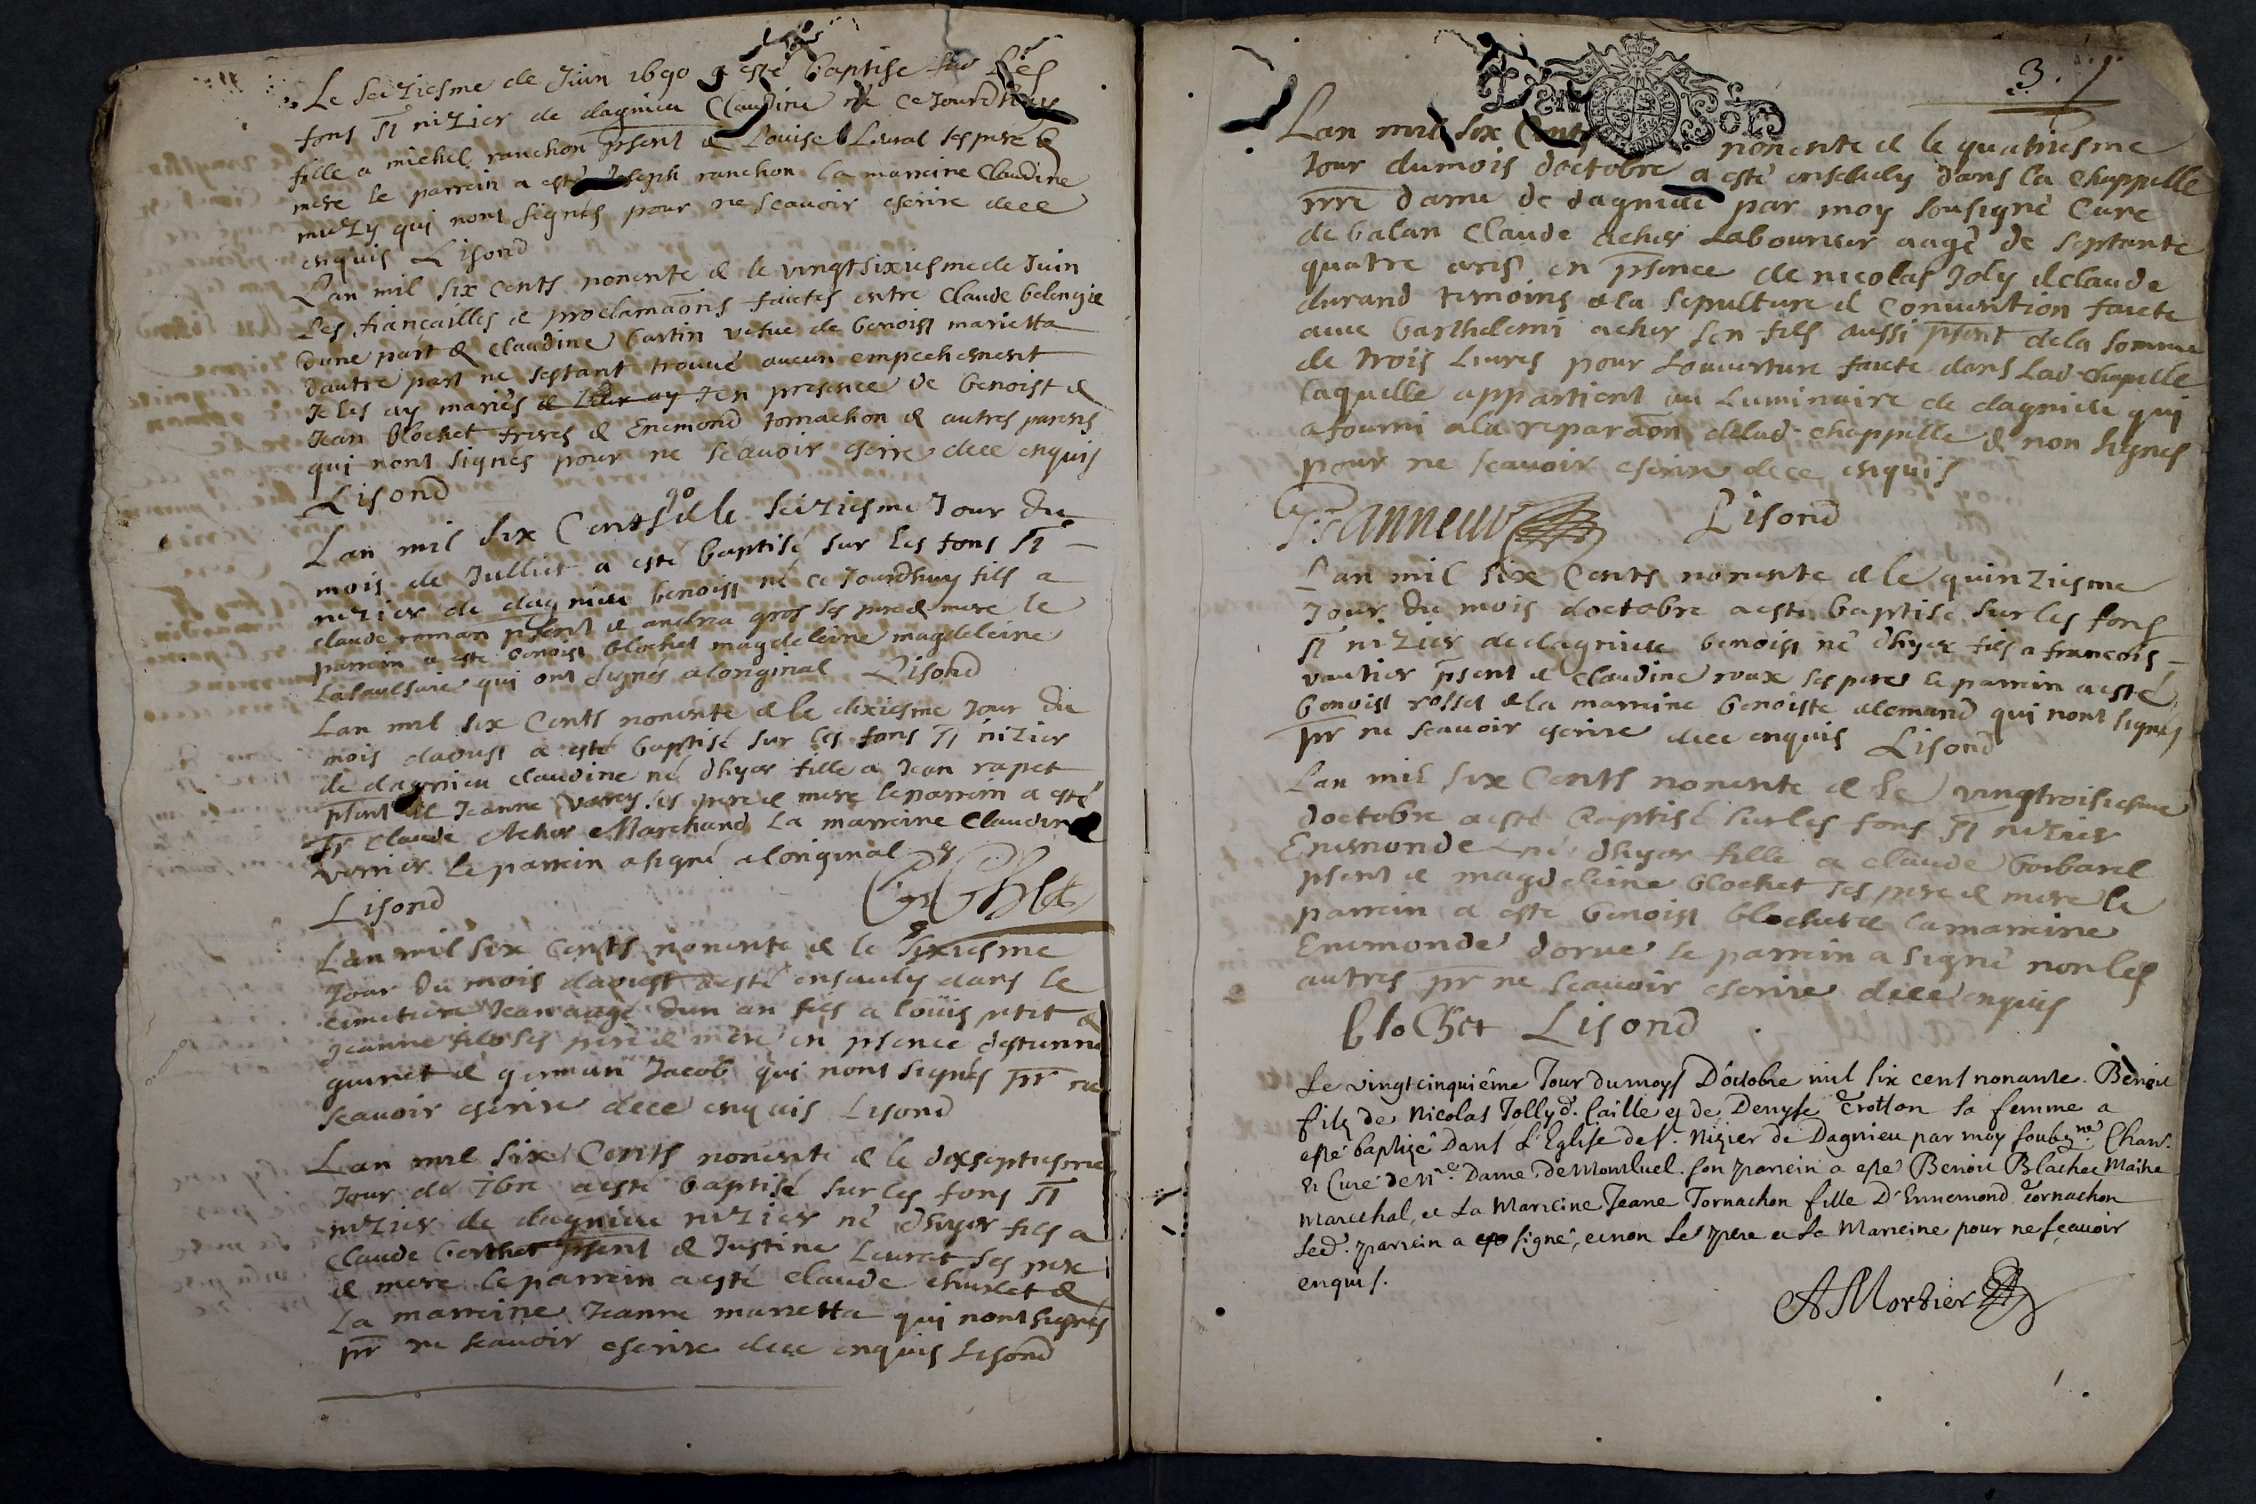 Le seiziesme de Juin 1690 a esté baptisé sur Les
fons st nizier de dagnieu Claudine né ce Jourdhuy
fille a michel ranchon psent et Louise Leural ses pere et
mere le parrein a esté Joseph ranchon la marreine Claudine
qui nont signés pour ne scauoir escrire dece
enquis Lisond
Lan mil six Cents nonente et le vingtsixiesme de Juin
Les fiancailles et proclamaons faictes entre Claude belengie
dune part et Claudine bartin vefue de benoist marietta
dautre part ne sestant trouué aucun empechement
Je les ay mariés en presence de benoist et
Jean blochet freres et Enemond tornachon et autres parens
qui nont signés pour ne scauoir escrire dece enquis
Lisond
Lan mil six Cents 90 et le seiziesme Jour du
mois de Julliet a esté baptisé sur les fons st
nizier de dagnieu benoist né ce Jourdhuy fils a
claude roman psent et andrea gros ses pere et mere le
parrein a esté benoist blochet magdeleine magdeleine
qui ont signés a loriginal Lisond
Lan mil six Cents nonente et le dixiesme Jour du
mois daoust a esté baptisé sur les fons st nizier
de dagnieu claudine né dhyer fille a Jean rapet
psent et Jeanne varey ses pere et mere le parrein a esté
sr Claude Acher Marchand La marreine Claudine
verrier le parrein a signé a loriginal
Lisond
Lan mil six Cents nonente et le sixiesme
Jour du mois daoust a esté enseuely dans le
cimetiere Jean aagé dun an fils a loüis petit et
Jeanne ses pere et mere en psence destienne
guinet et german Jacob qui nont signés pr ne
scauoir escrire dece enquis Lisond
Lan mil six Cents nonente et le dixseptiesme
Jour de 7bre a esté baptisé sur les fons st
nizier de dagnieu nizier né dhyer fils a
Claude berthet psent et Justine Leurat ses pere
et mere le parrein a esté claude churlet et
La marreine Jeanne marietta qui nont signés
pr ne scauoir escrire dece enquis Lisond
3.
Lan mil six Cents nonente et le quatriesme
Jour dumois doctobre a esté enseuely dans la chappelle
nre dame de dagnieu par moy sousigné Curé
de balan Claude acher Laboureur aagé de septante
quatre ans en psence de nicolas Joly et claude
durand temoins a la sepulture et Conuention faicte
auec barthelemi acher son fils aussi psent dela somme
de trois Liures pour Louuerture faicte dans Lad chapelle
laquelle appartient au Luminaire de dagnieu qui
a fourni a la reparaon delad chappelle et non signés
pour ne scauoir escrire dece enquis
Lisond
Lan mil six Cents nonente et le quinziesme
Jour du mois doctobre a esté baptisé sur les fons
st nizier de dagnieu benoist né dhyer fils a francois
vautier psent et Claudine roux ses peres le parrein a esté
benoist rosset et la marreine benoiste alemand qui nont signés
pr ne scauoir escrire dece enquis Lisond
Lan mil six Cents nonente et le vingtroisiesme
doctobre a esté baptisé sur les fons st nizier
Enemonde né dhyer fille a claude barbarel
psent et magdeleine blochet ses pere et mere le
parrein a esté benoist blochet et la marreine
Enemonde dorue le parrein a signé non les
autres pr ne scauoir escrire dece enquis
bloChet Lisond
Le vingt cinquiême Jour du moys D'octobre mil six cent nonante. Benoit
filz de Nicolas Jolly d. Caille et de Denyse Trotton sa femme a
esté baptizé Dans L'Eglise de S. Nizier de Dagnieu par moy soubzné. Chan.
et Curé de Ne. Dame de Montluel. son parrein a esté Benoit Blachet Maitre
Marechal, et La Marreine Jeane Tornachon fille D'Ennemond Tornachon
led. parrein a signé, et non Le Pere et La Marreine pour ne sçauoir
enquis.
A Mortier